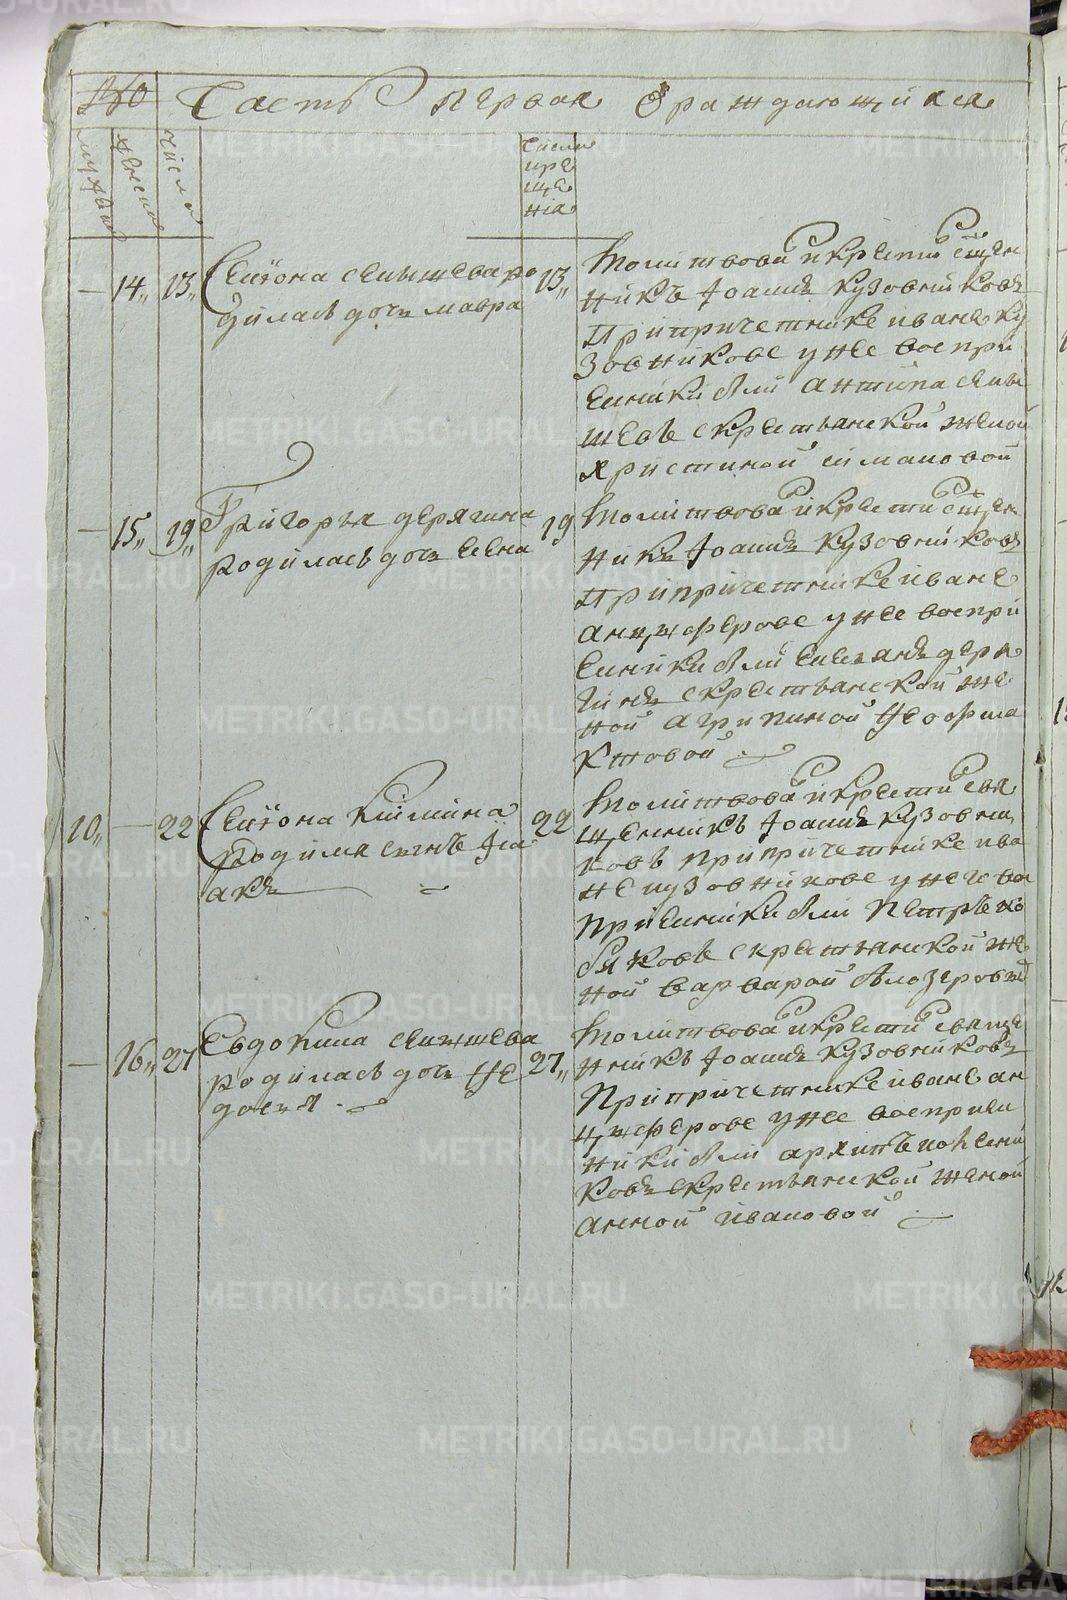 Часть первая ѡраждающийхся
числа
женска
мужеска
число
креще
нія
14,, 13,, Симона
родилась дочь мавра
13,,
молитвовал и крестил сщен
никъ Іоаннъ кузовниковъ
При причетнике иване ку
зовникове у нее воспри
емники были антипа
с крестьянской женой
христиной симановой
15,, 19,, Григорья дерягина
родилась дочь елена
19
молитвовал и крестил сщен
никъ Іоаннъ кузовниковъ
При причетнике иване
анцыферове у нее воспри
емники были деря
гинъ с крестьянской же
ной агрипиной Неофила
ктовой
10,, 22 Симона
родился сынъ Іса
акъ
22
молитвовал и крестил свя
щенникъ Іоаннъ кузовни
ковъ При причетнике ива
не кузовникове у него во
приемники были Петръ ко
быковъ с крестьянской же
ной варварой
16,, 27 Евдокима
родилась дочь Фе
досья
27,,
молитвовал и крестил свяще
никъ Іоаннъ кузовниковъ
При причетнике иване ан
цыферове у нее восприем
ники были архипъ
ковъ с крестьянской женой
анной ивановой
METRIKI.GASO-URAL.RU